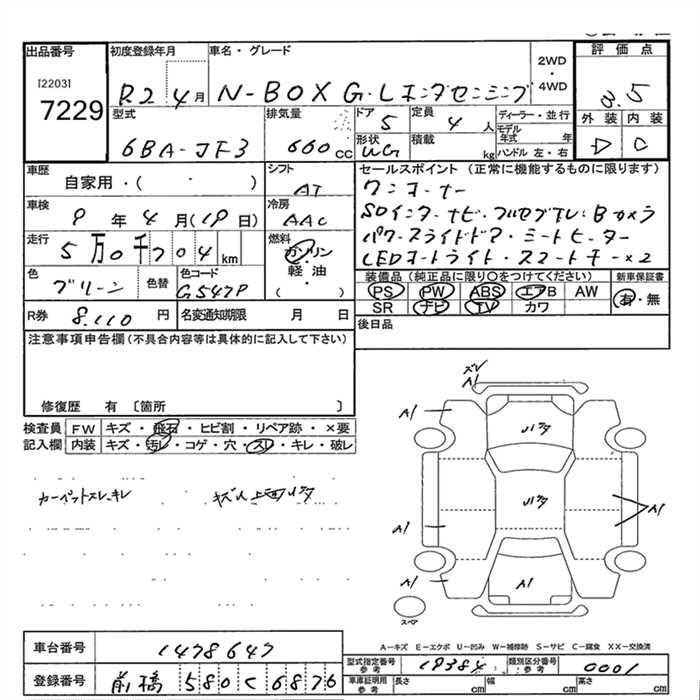 出品番号
[2203]
7229
初度登録年月
R2年4月
車名・グレード
N-BOX G・Lホンダセンシング
2WD
・
4WD
評価点
3.5
型式
6BA-JF3
排気量
660cc
ドア
5
定員
4人
ディーラー・並行
モデル年式 年
形状
WG
積載
kg
ハンドル 左・右
外装 内装
D C
車歴
自家用・( )
シフト
AT
車検
9年4月(19日)
冷房
AAC
走行
5万0千704km
燃料
ガソリン
・
軽油
( )
色
グリーン
色替
色コード
G547P
R券
8,110円
名変通知期限 月 日
セールスポイント(正常に機能するものに限ります)
ワンオーナー
SDインターナビ・フルセグTV・Bカメラ
パワースライドドア・シートヒーター
LEDオートライト・スマートキー×2
装備品(純正品に限り○をつけてください)
PS PW ABS エアB AW
SR ナビ TV カワ
新車保証書
有・無
後日品
注意事項申告欄(不具合内容等は具体的に記入して下さい)
修復歴 有 〔箇所 〕
検査員 FW キズ・飛石・ヒビ割・リペア跡・×要
記入欄 内装 キズ・汚レ・コゲ・穴・スレ・キレ・破レ
カーペットスレ、キレ
A1
A1
A1
A1
A1
A1
A-キズ E-エクボ U-凹み W-補修跡 S-サビ C-腐食 XX-交換済
車台番号
1478647
登録番号
前橋 580 C 6876
型式指定番号
参考
19384
類別区分番号
参考
0001
車庫証明用
参考
長さ cm
幅 cm
高さ cm